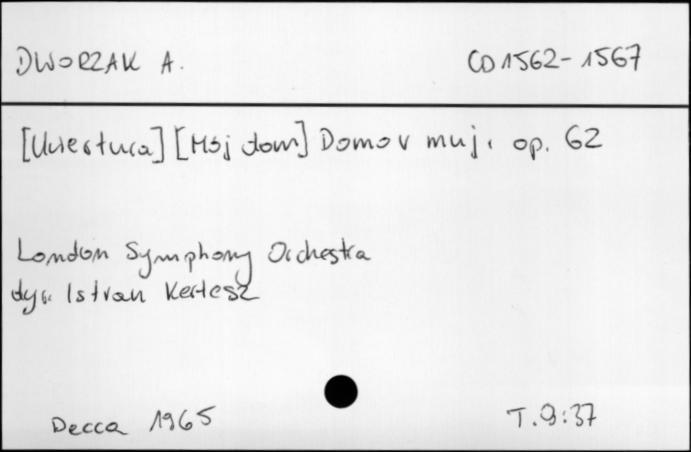 DWORZAK A. CD 1562-1567
[Uwertura] [Mój dom] Domov muj. op. 62
London Symphony Orchestra
dyr. Istvan Kertesz
Decca 1965 T. 9:37